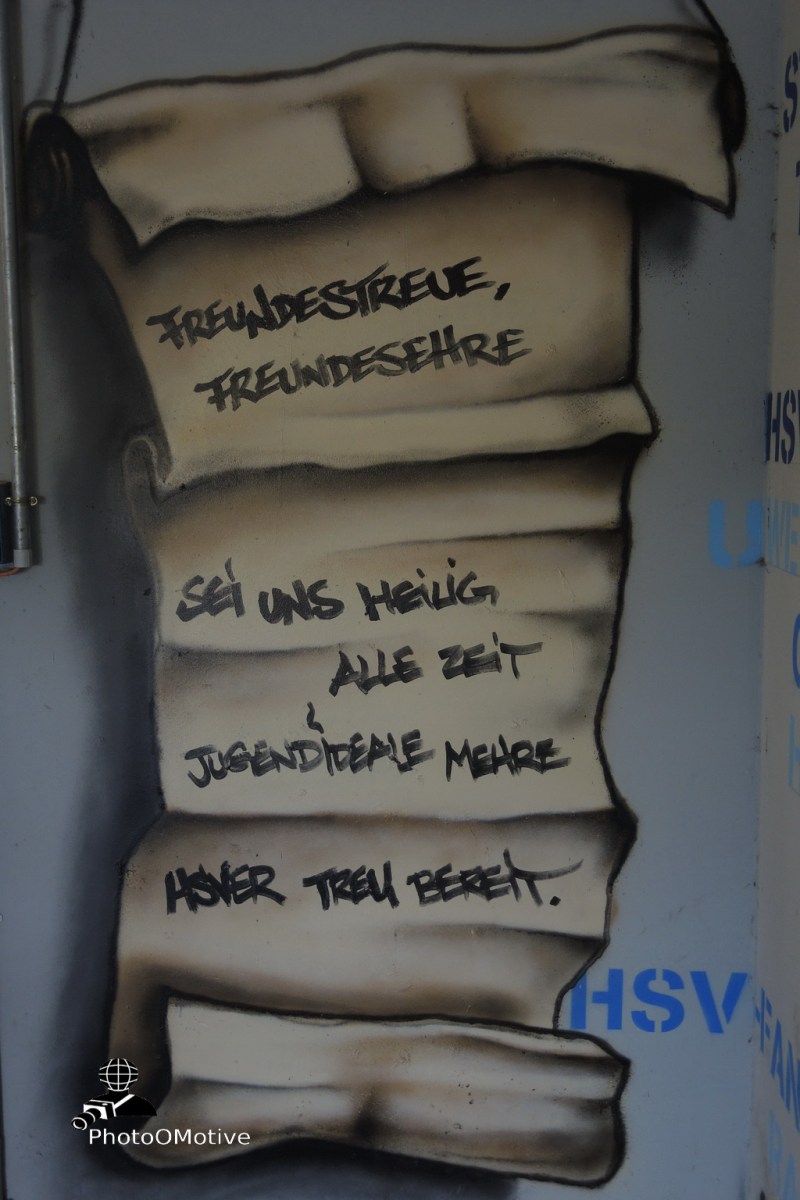 FREUNDESTREUE,
FREUNDESEHRE
SEi UNS HEiLiG
ALLE ZEiT
JUGENDiDEALE MEHRE
HSVER TREU BEREiT.
HSV
HSV
U
PhotoOMotive